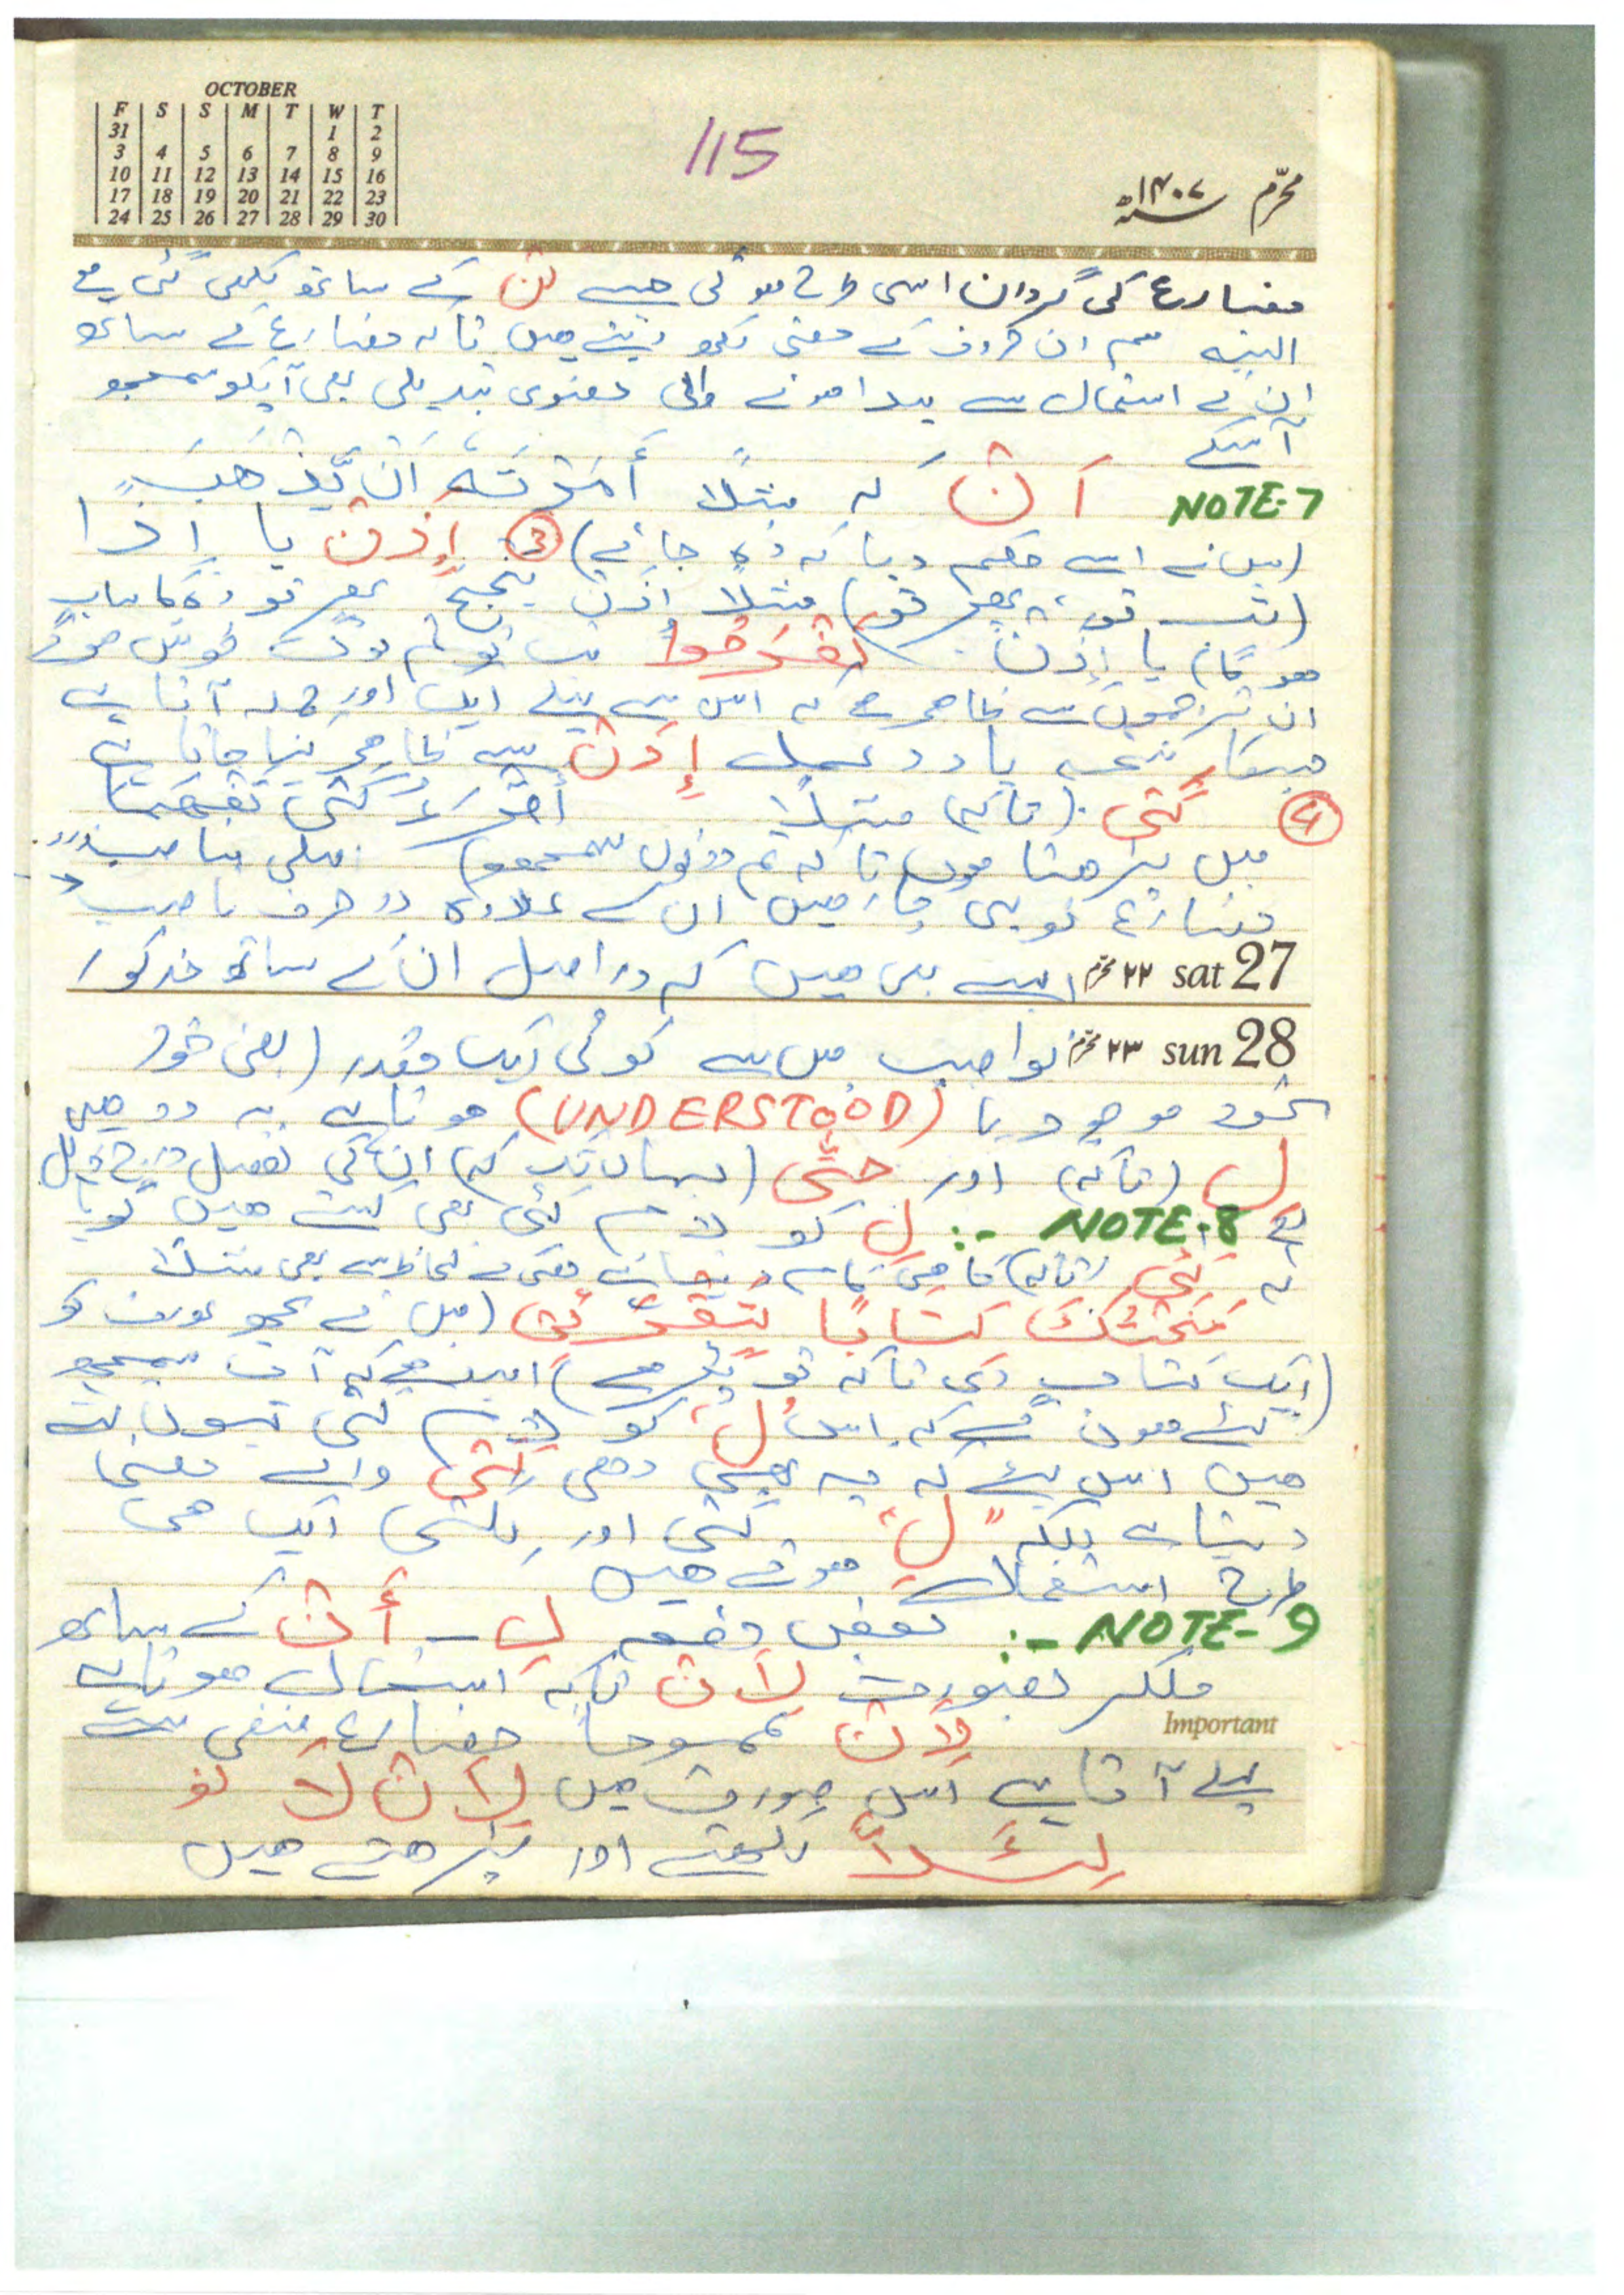 OCTOBER
F S S M T W T
31 1 2
3 4 5 6 7 8 9
10 11 12 13 14 15 16
17 18 19 20 21 22 23
24 25 26 27 28 29 30
115
محرّم ۱۴۰۷
مضارع کی گردان اسی طرح ہو گی جیسے لَنْ کے ساتھ لکھی گئی ہے
البتہ ہم ان حروف کے معنی لکھ دیتے ہیں تاکہ مضارع کے ساتھ
ان کے استعمال سے پیدا ہونے والی معنوی تبدیلی بھی آپکو سمجھ
آسکے
NOTE-7 اَنْ کہ مثلاً أَمَرْتُهُ اَنْ يَّذْهَبَ
(میں نے اسے حکم دیا کہ وہ جائے) ③ إِذَنْ یا إِذًا
(تب تو، پھر تو) مثلاً إِذَنْ يَنْجَحَ پھر تو وہ کامیاب
ہو گا) یا إِذَنْ تَفْرَحُوا تب تو تم لوگ خوش ہو گے
ان ترجموں سے ظاہر ہے کہ اس سے پہلے ایک اور جملہ آتا ہے
جسکا نتیجہ یا رد عمل إِذَنْ سے ظاہر کیا جاتا ہے
④ كَیْ (تاکہ) مثلاً أَقْرَءُ كَیْ تَفْهَمَا
میں پڑھتا ہوں تاکہ تم دونوں سمجھو) اصلی ناصب
مضارع تو یہی چار ہیں ان کے علاوہ دو حرف ناصب
27 sat ۲۲ محرّم ایسے ہیں کہ دراصل ان کے ساتھ مذکورہ
28 sun ۲۳ محرّم نواصب میں سے کوئی ایک مقدر (یعنی خود
بخود موجود یا (UNDERSTOOD) ہوتا ہے یہ دو ہیں
لِ (تاکہ) اور حَتّٰی (یہاں تک کہ) ان کی تفصیل درج ذیل
ہے NOTE-8 -: لِ کو لامِ کَیْ بھی کہتے ہیں گویا
کہ کَیْ (تاکہ) کا ہی کام دیتا ہے معنی کے لحاظ سے بھی مثلاً
مَنَحْتُكِ كِتَابًا لِتَقْرَئِی (میں نے تجھ عورت کو
(ایک کتاب دی تاکہ تو پڑھے) امید ہے کہ آپ سمجھ
گئے ہوں گے کہ اس "لِ" کو لامِ کَیْ کیوں کہتے
ہیں اس لئے کہ یہ بھی وہی کَیْ والے معنی
دیتا ہے بلکہ "لِ" ، کَیْ اور لِکَیْ ایک ہی
طرح استعمال ہوتے ہیں
NOTE-9 -: بعض دفعہ لِ - أَنْ کے ساتھ
ملکر بصورت لِاَنْ تاکہ استعمال ہوتا ہے
Important
لِاَنْ عموماً مضارع منفی سے
پہلے آتا ہے اس صورت میں لِاَنْ لَا کو
لِئَلَّا لکھتے اور پڑھتے ہیں